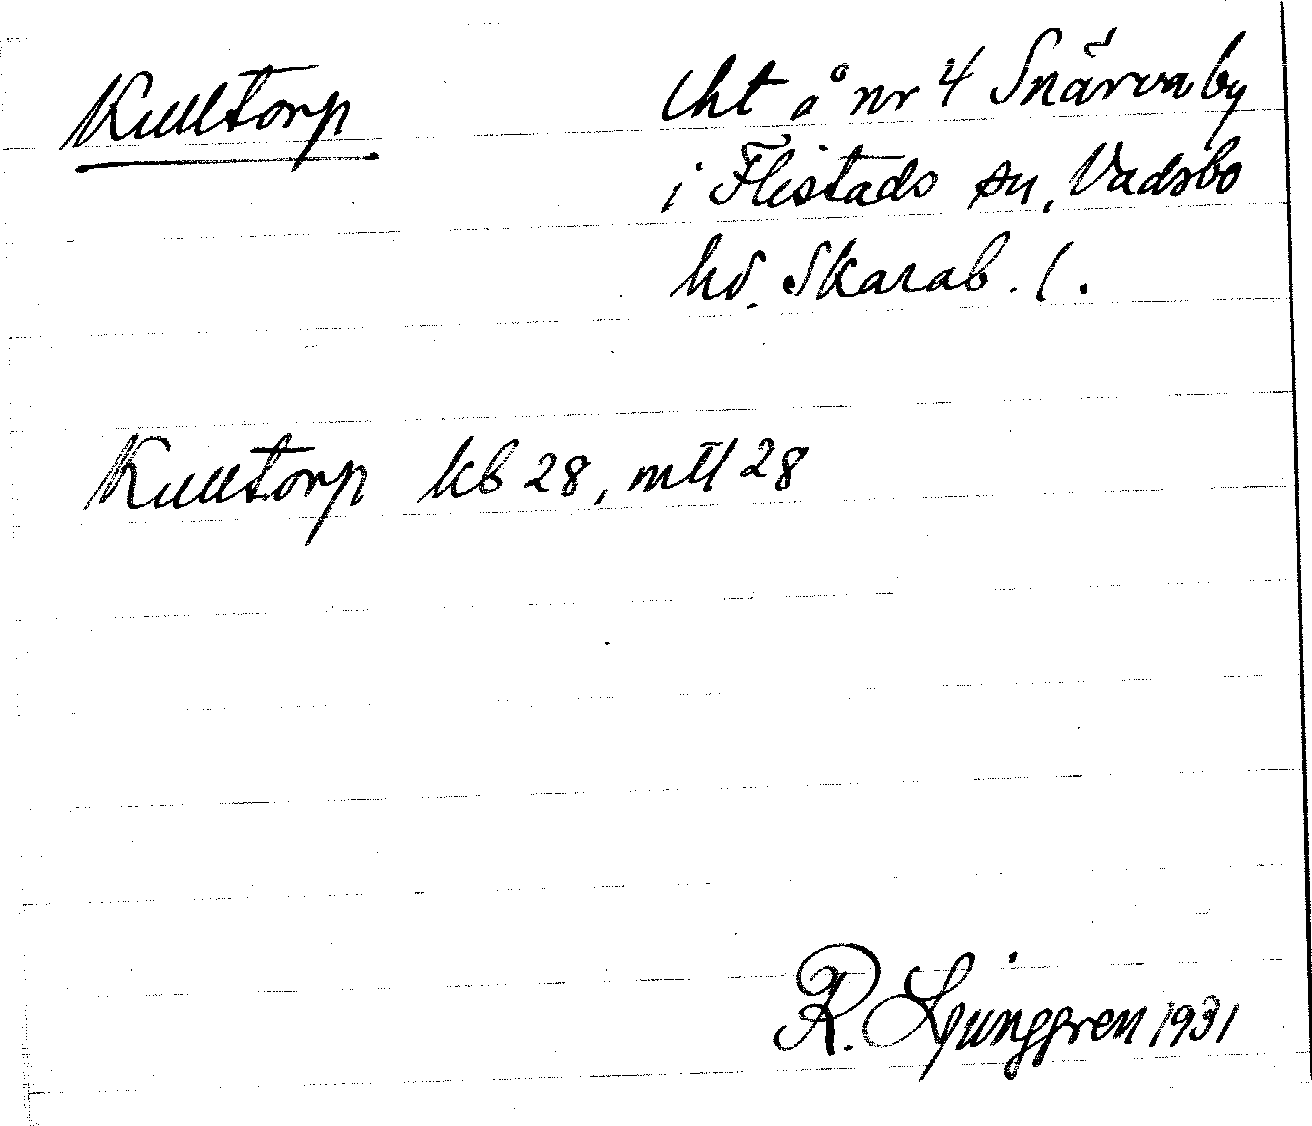 Kulltorp
lht å nr 4 Snärva by
i Flistads sn, Vadsbo
hd. Skarab. l.
Kulltorp kb 28, mtl 28
R. Ljunggren 1931